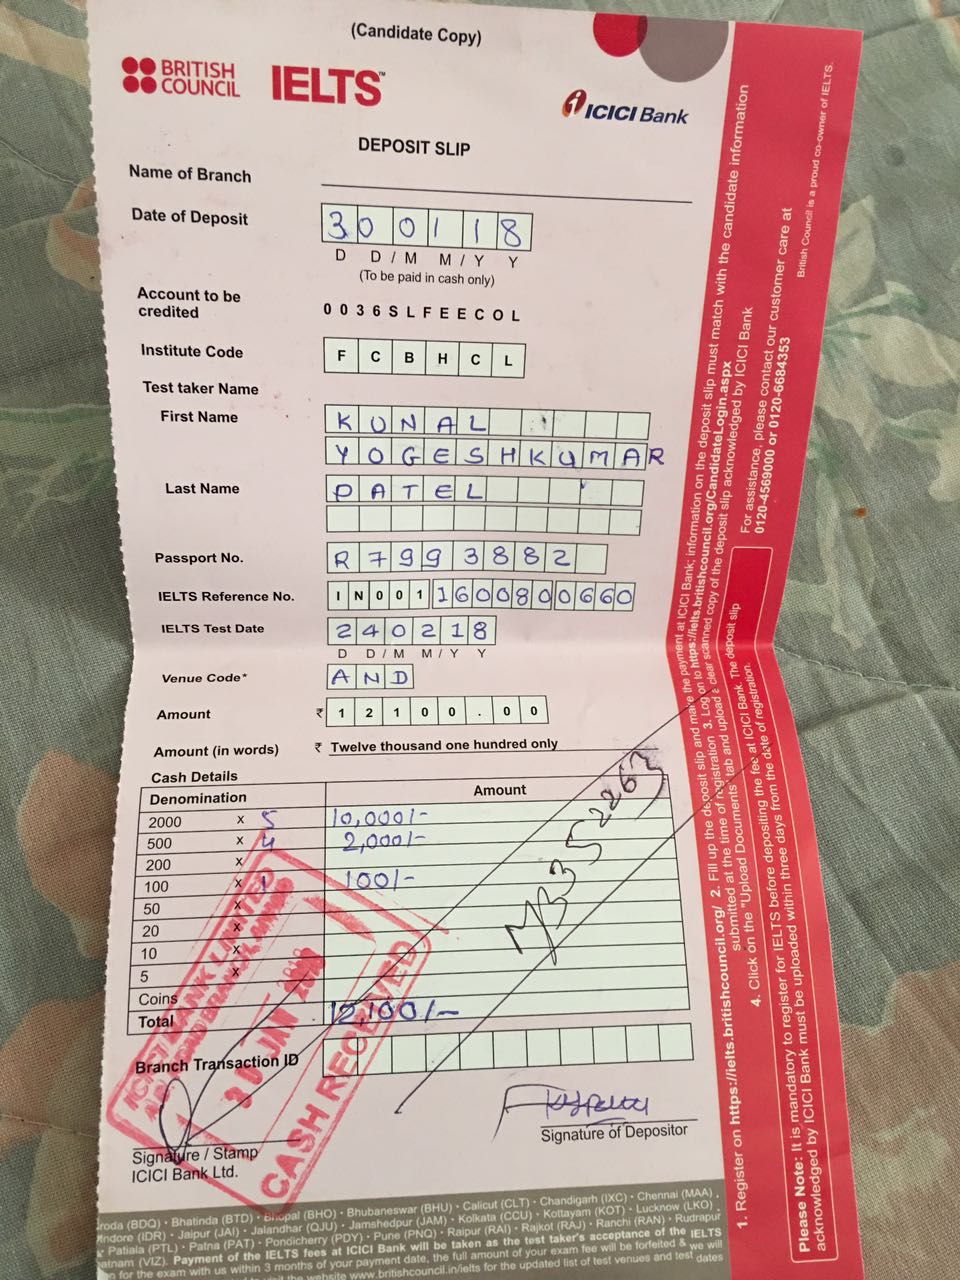 (Candidate Copy)
BRITISH
COUNCIL
IELTS™
ICICI Bank
DEPOSIT SLIP
Name of Branch
Date of Deposit 3 0 0 1 1 8
D D / M M / Y Y
(To be paid in cash only)
Account to be
credited
0 0 3 6 S L F E E C O L
Institute Code F C B H C L
Test taker Name
First Name K U N A L
Y O G E S H K U M A R
Last Name P A T E L
Passport No. R 7 9 9 3 8 8 2
IELTS Reference No. I N 0 0 1 1 6 0 0 8 0 0 6 6 0
IELTS Test Date 2 4 0 2 1 8
D D / M M / Y Y
Venue Code* A N D
Amount ₹ 1 2 1 0 0 . 0 0
Amount (in words) ₹ Twelve thousand one hundred only
Cash Details
Denomination Amount
2000 x 5 10,000/-
500 x 4 2,000/-
200 x
100 x 1 100/-
50 x
20 x
10 x
5 x
Coins
Total 12,100/-
MB352263
Branch Transaction ID
ICICI BANK LIMITED
30 JAN 2018
CASH RECEIVED
Signature / Stamp
ICICI Bank Ltd.
Signature of Depositor
roda (BDQ) • Bhatinda (BTD) • Bhopal (BHO) • Bhubaneswar (BHU) • Calicut (CLT) • Chandigarh (IXC) • Chennai (MAA) ,
Indore (IDR) • Jaipur (JAI) • Jalandhar (QJU) • Jamshedpur (JAM) • Kolkata (CCU) • Kottayam (KOT) • Lucknow (LKO) ,
• Patiala (PTL) • Patna (PAT) • Pondicherry (PDY) • Pune (PNQ) • Raipur (RAI) • Rajkot (RAJ) • Ranchi (RAN) • Rudrapur
atnam (VIZ). Payment of the IELTS fees at ICICI Bank will be taken as the test taker's acceptance of the IELTS
n for the exam with us within 3 months of your payment date, the full amount of your exam fee will be forfeited & we will
the website www.britishcouncil.in/ielts for the updated list of test venues and test dates
1. Register on https://ielts.britishcouncil.org/ 2. Fill up the deposit slip and make the payment at ICICI Bank; information on the deposit slip must match with the candidate information
submitted at the time of registration 3. Log on to https://ielts.britishcouncil.org/CandidateLogin.aspx
4. Click on the "Upload Documents" tab and upload a clear scanned copy of the deposit slip acknowledged by ICICI Bank
Please Note: It is mandatory to register for IELTS before depositing the fee at ICICI Bank. The deposit slip
acknowledged by ICICI Bank must be uploaded within three days from the date of registration.
For assistance, please contact our customer care at
0120-4569000 or 0120-6684353
British Council is a proud co-owner of IELTS.